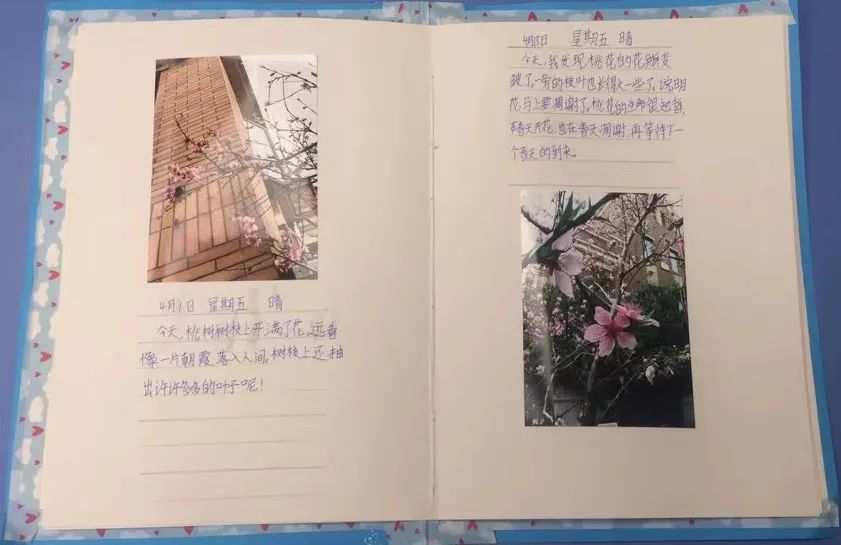 4月1日 星期五 晴
今天，桃树树枝上开满了花，远看
像一片朝霞落入人间，树枝上还抽
出许许多多的叶子呢！
4月8日 星期五 晴
今天，我发现桃花的花瓣变
皱了，旁的枝叶也长得大一些了，说明
花马上要凋谢了。桃花的生命很短暂，
春天开花，也在春天凋谢，再等待下一
个春天的到来。